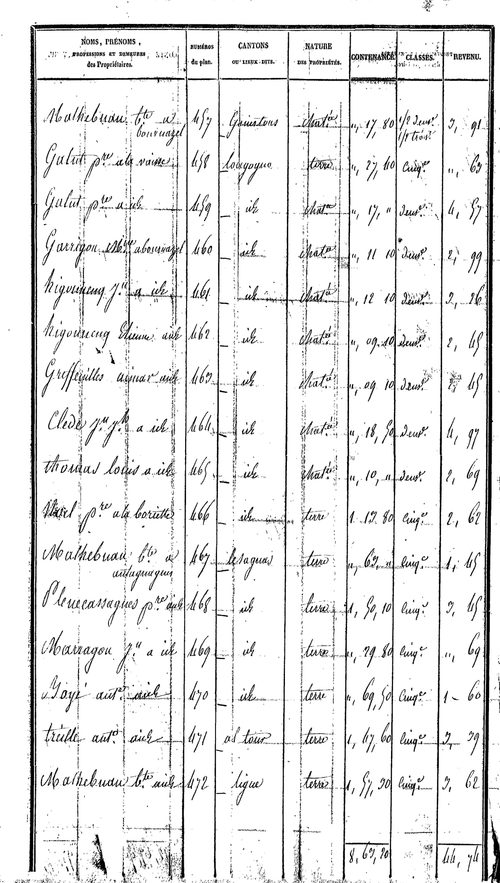 NOMS, PRÉNOMS, PROFESSIONS ET DEMEURES des Propriétaires. NUMÉROS du plan. CANTONS OU LIEUX-DITS. NATURE DES PROPRIÉTÉS. CONTENANCE. CLASSES. REVENU.
Mathebuau bte a bournazel 457 chat.ie ,, 17, 80 1/2 deux.e 1/2 trois.e 3, 91
Galut p.re a la vaisse 458 bourgogne terre ,, 27, 40 cinq.e ,, 63
Galut p.re a id 459 id chat.ie ,, 17, ,, deux.e 4, 57
Garrigou a bournazel 460 id chat.ie ,, 11 10 deux.e 2, 99
higounenq j.n a id 461 id chat.ie ,, 12 10 deux.e 3, 26
higounenq Etienne a id 462 id chat.ie ,, 09, 10 deux.e 2, 45
Greffeuilles aimar a id 463 id chat.ie ,, 09 10 deux.e 2, 45
Clede j.n j.h a id 464 id chat.ie ,, 18, 50 deux.e 4, 97
thomas louis a id 465 id chat.ie ,, 10, ,, deux.e 2, 69
p.re a la boriette 466 id terre 1 13, 80 cinq.e 2, 62
Mathebuau b.te a antagnagues 467 lesagnas terre ,, 63, ,, cinq.e 1, 45
Plenecassagnes p.re a id 468 id terre 1, 50, 10 cinq.e 3, 45
Marragou j.n a id 469 id terre ,, 29, 80 cinq.e ,, 69
ant.e a id 470 id terre ,, 69, 50 cinq.e 1 - 60
treille ant.e a id 471 al tour terre 1, 47, 60 cinq.e 3, 39
Mathebuau b.te a id 472 ligue terre 1, 57, 30 cinq.e 3, 62
8, 63, 30 44, 74